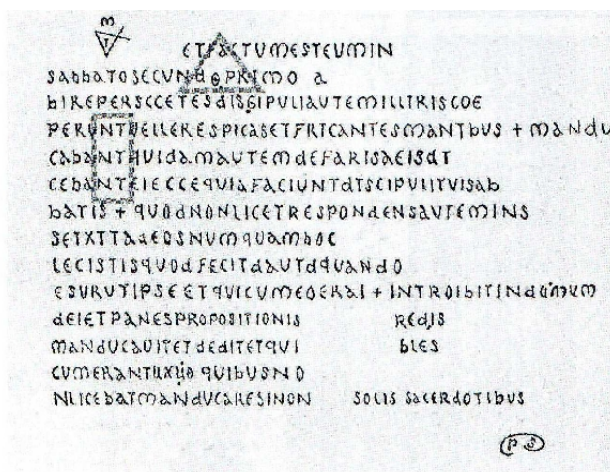 ETFACTUMESTEUMIN
SabbATOSECUNdOPRIMO a
bIREPERSCCETESdISGIPULIAUTEMILLITRISCOE
PERUNTUELLERESPICASETFRICANTESMANTbUS + MANdU
CAbANTQUIdAMAUTEMdEFARISAEISdT
CEbANTEIECCEQUIAFACIUNTdTSCIPULITVISAb
bATIS + QUOdNONLICETRESPONdENSAUTEMINS
SETXTTAdEOSNUMQUAMbOC
LECISTISQUOdFECITdAUTdQUANdO
ESURUTIPSEETQUICUMEOERAI + INTROIBITINdOMUM
dEIETPANESPROPOSITIONIS REdIS
MANdUCAUITETdEdITETQUI bLES
CUMERANTUXUO QUIBUSNO
NLICEbATMANdUCARESINON SOLIS SACERdOTIbUS
PS